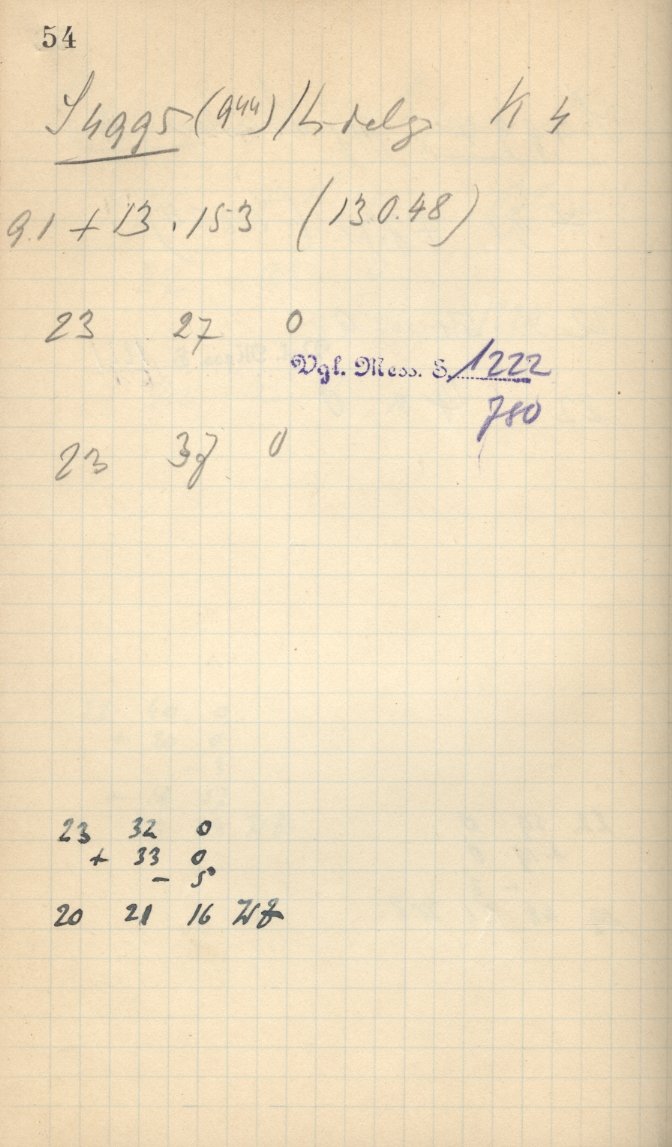 54
S 4995 (9⁴⁴) / K 4
9.1 + 13.153 (130.48)
23 27 0
Vgl. Mess. S. 1222
780
23 37 0
23 32 0
+ 33 0
- 5
20 21 16